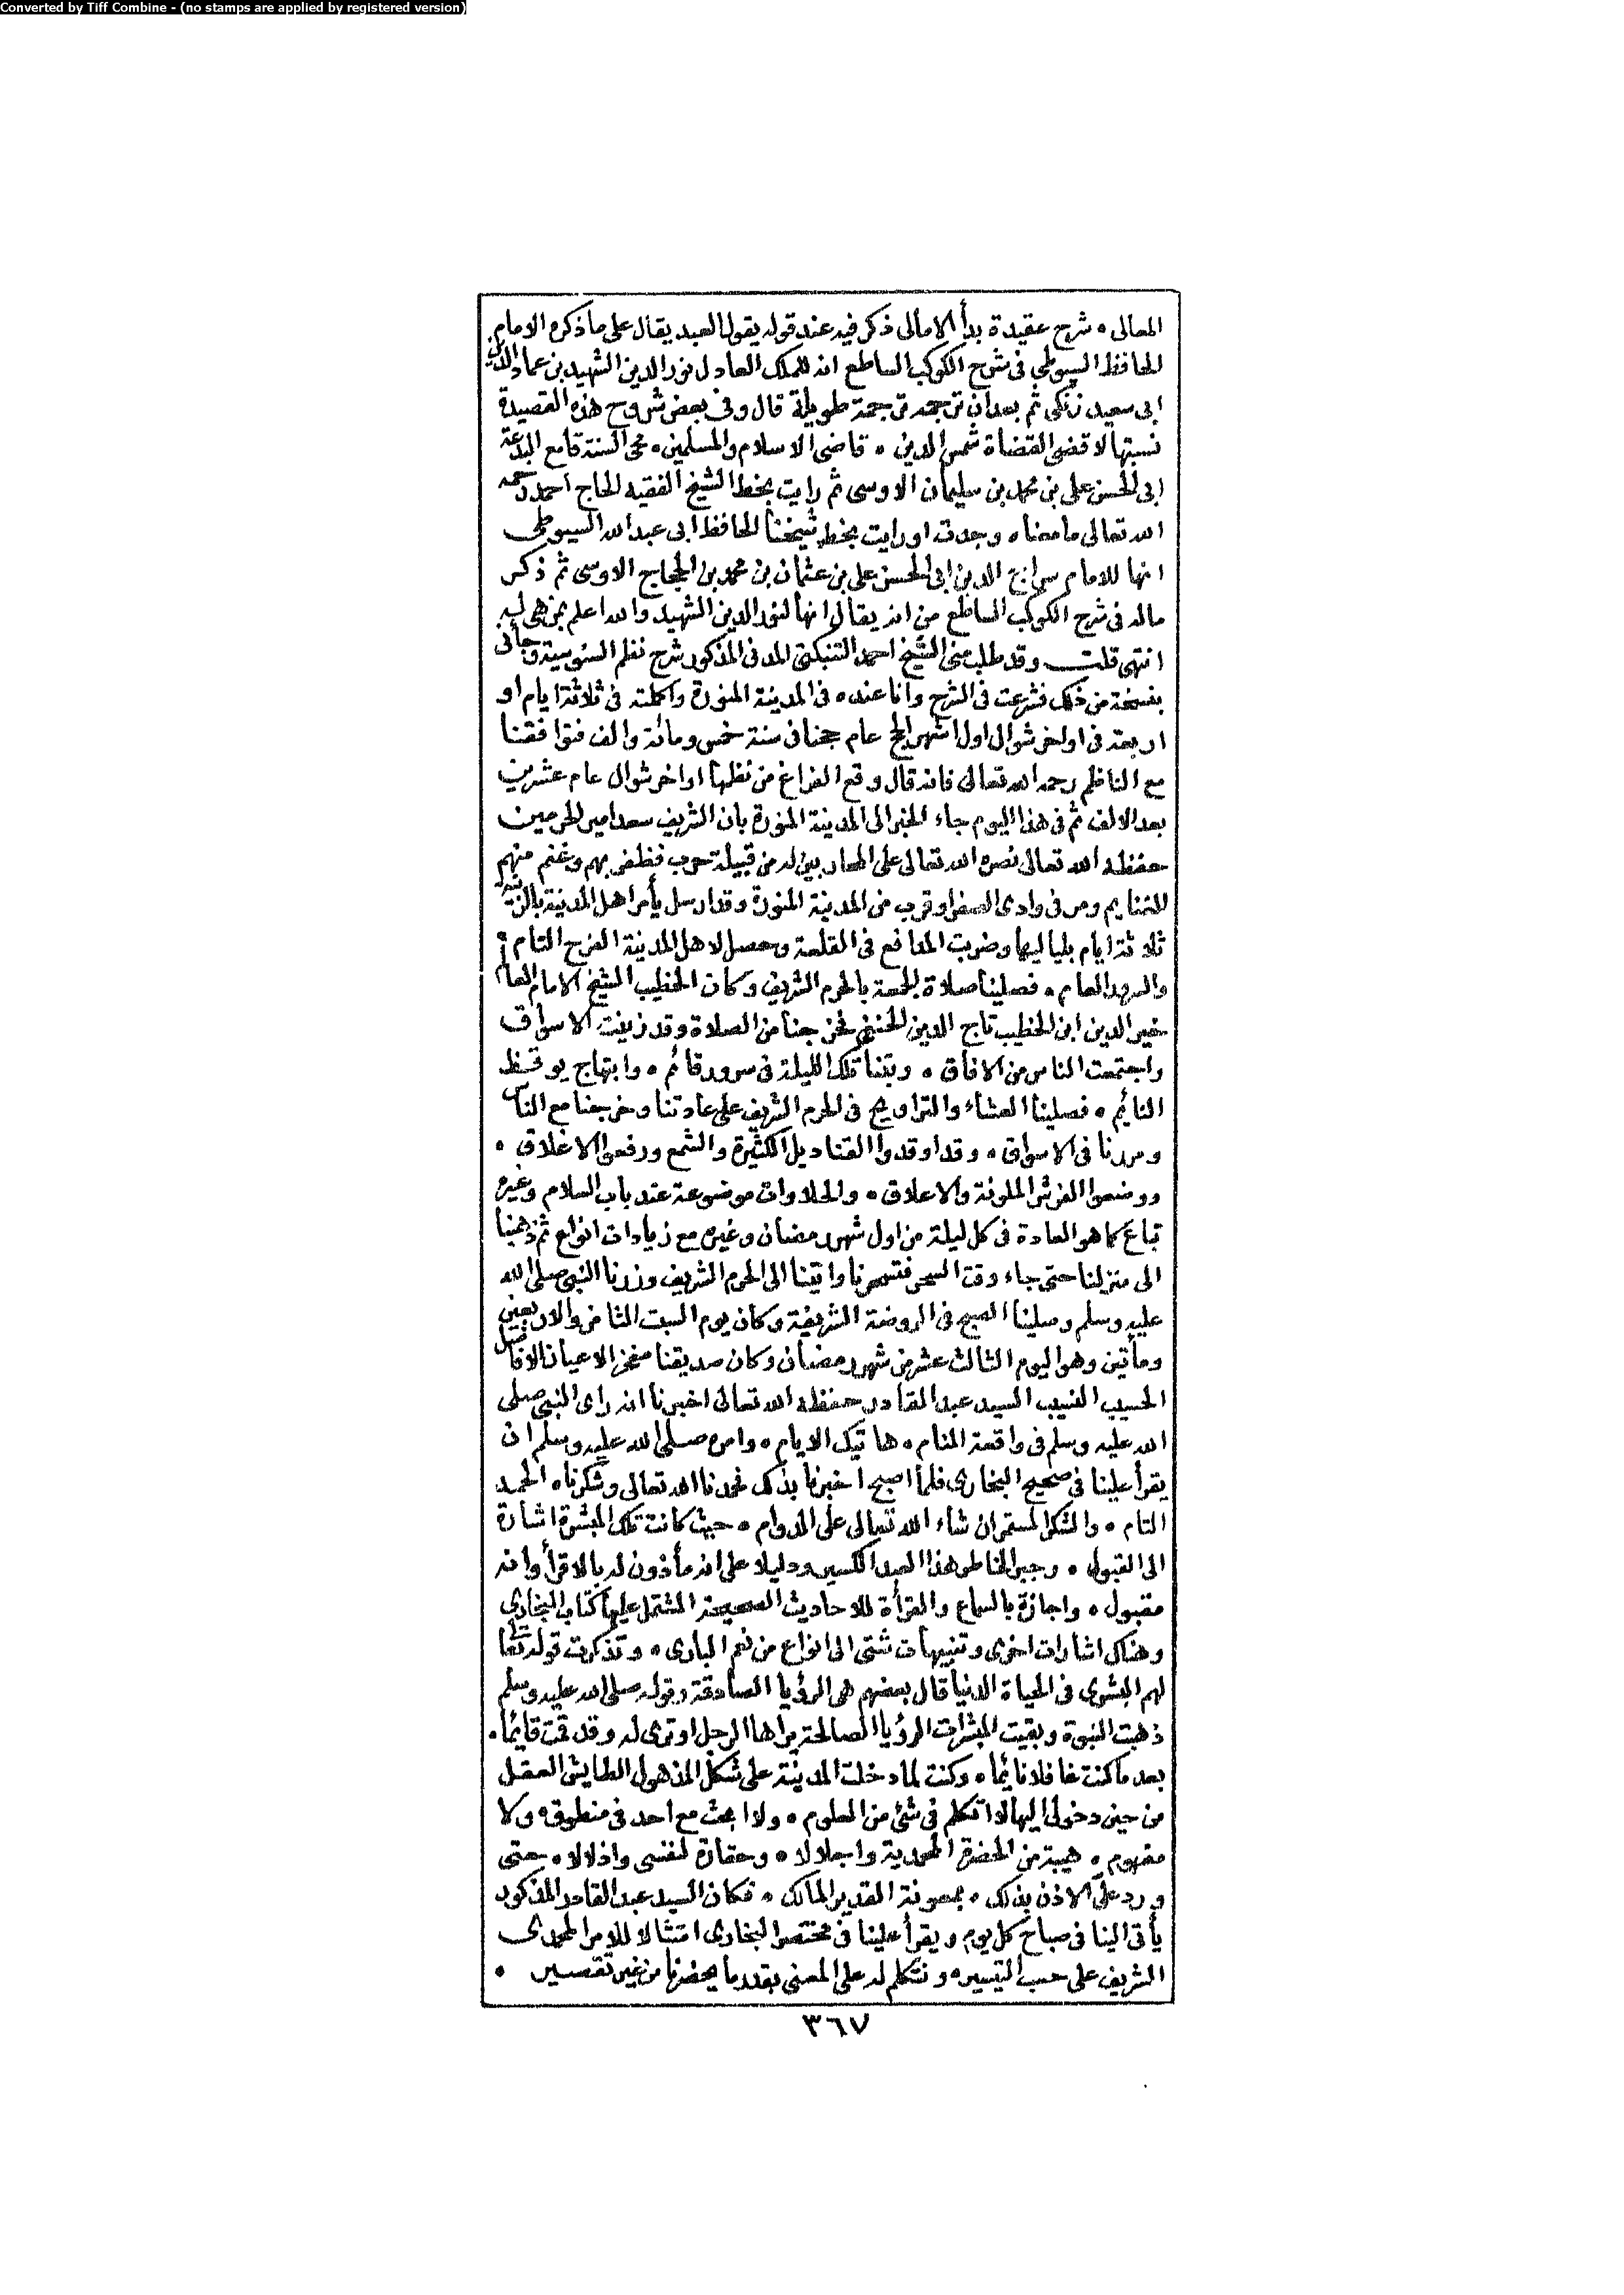 Converted by Tiff Combine - (no stamps are applied by registered version)
المعالى ٥ شرح عقيدة بدأ الامالى ذكر فيه عند قوله يقول العبد يقال على ما ذكره الامام
الحافظ السيوطى فى شرح الكوكب الساطع انه للملك العادل نور الدين الشهيد بن عماد الدين
ابى سعيد زنكى ثم بعد ان ترجمه ترجمة طويلة قال وفى بعض شروح هذه القصيدة
نسبتها لاقضى القضاة شمس الدين ٥ قاضى الاسلام والمسلمين ٥ محى السنة قامع البدعة
ابى الحسن على بن محمد بن سليمان الاوسى ثم رايت بخط الشيخ الفقيه الحاج احمد رحمه
الله تعالى ما معناه وجدت او رايت بخط شيخنا الحافظ ابى عبد الله السيوطى
انها للامام سراج الدين ابى الحسن على بن عثمان بن محمد بن الحجاج الاوسى ثم ذكر
ماله فى شرح الكوكب الساطع من انه يقال انها لنور الدين الشهيد والله اعلم بمن هى له
انتهى قلت وقد طلب منى الشيخ احمد التنبكتى المدنى المذكور شرح نظم السنوسية وجأنى
بنسخة من ذلك فشرعت فى الشرح وانا عنده فى المدينة المنورة واكملته فى ثلاثة ايام او
اربعة فى اواخر شوال اول اشهر الحج عام حجنا فى سنة خمس ومائة والف فتوافقنا
مع الناظم رحمه الله تعالى فانه قال وقع الفراغ من نظمها اواخر شوال عام عشرين
بعد الالف ثم فى هذا اليوم جاء الخبر الى المدينة المنورة بان الشريف سعد امير الحرمين
حفظه الله تعالى نصره الله تعالى على المحاربين له من قبيلة حرب فظفر بهم وغنم منهم
الغنايم ومر فى وادى الصفرا وقرب من المدينة المنورة وقد ارسل يأمر اهل المدينة بالزينة
ثلاثة ايام بلياليها وضربت المدافع فى القلعة وحصل لاهل المدينة الفرح التام
والسرور العام ٥ فصلينا صلاة الجمعة بالحرم الشريف وكان الخطيب الشيخ الامام العالم
خير الدين ابن الخطيب تاج الدين الحنفى فخرجنا من الصلاة وقد زينت الاسواق
واجتمعت الناس من الافاق ٥ وبتنا تلك الليلة فى سرور قائم ٥ وابتهاج يوقظ
النائم ٥ فصلينا العشاء والتراويح فى الحرم الشريف على عادتنا وخرجنا مع الناس
ومررنا فى الاسواق ٥ وقد اوقدوا القناديل الكثيرة والشمع ورفعوا الاغلاق ٥
ووضعوا الفرش الملونة والاعلاق ٥ والحلاوات موضوعة عند باب السلام وغيره
تباع كما هو العادة فى كل ليلة من اول شهر رمضان وغيره مع زيادات انواع ثم ذهبنا
الى منزلنا حتى جاء وقت السحر فتسحرنا واتينا الى الحرم الشريف وزرنا النبى صلى الله
عليه وسلم وصلينا الصبح فى الروضة الشريفة وكان يوم السبت الثامن والاربعين
ومأتين وهو اليوم الثالث عشر من شهر رمضان وكان صديقنا مفخر الاعيان الافاضل
الحسيب النسيب السيد عبد القادر حفظه الله تعالى اخبرنا انه راى النبى صلى
الله عليه وسلم فى واقعة المنام ٥ هاتيك الايام ٥ وامره صلى الله عليه وسلم ان
يقرأ علينا فى صحيح البخارى فلما اصبح اخبرنا بذلك فحمدنا الله تعالى وشكرناه الحمد
التام ٥ والشكر المستمر ان شاء الله تعالى على الدوام ٥ حيث كانت تلك المبشرة اشارة
الى القبول ٥ وجبر الخاطر هذا العبد الكسير ودليلا على انه مأذون له بالاقرأ وانه
مقبول ٥ واجازة بالسماع والقرأة للاحاديث الصحيحة المشتمل عليها كتاب البخارى
وهناك اشارات اخرى وتنبيهات شتى الى انواع من نعم البارى ٥ وتذكرت قوله تعالى
لهم البشرى فى الحياة الدنيا قال بعضهم هى الرؤيا الصادقة وقوله صلى الله عليه وسلم
ذهبت النبوة وبقيت المبشرات الرؤيا الصالحة يراها الرجل او ترى له وقد قمت قايما ٥
بعد ما كنت غافلا نايما ٥ وكنت لما دخلت المدينة على شكل المذهول الطايش العقل
من حين دخولى اليها لا اتكلم فى شئ من العلوم ٥ ولا ابحث مع احد فى منطوق ٥ ولا
مفهوم ٥ هيبة من الحضرة المحمدية واجلالا ٥ وحقارة لنفسى واذلالا ٥ حتى
ورد على الاذن بذلك ٥ بمعونة القدير المالك ٥ فكان السيد عبد القادر المذكور
يأتى الينا فى صباح كل يوم ويقرأ علينا فى مختصر البخارى امتثالا للامر المحمدى
الشريف على حسب التيسير ٥ ونتكلم له على المعنى بقدر ما يحضرنا من غير تقصير ٥
٣٦٧